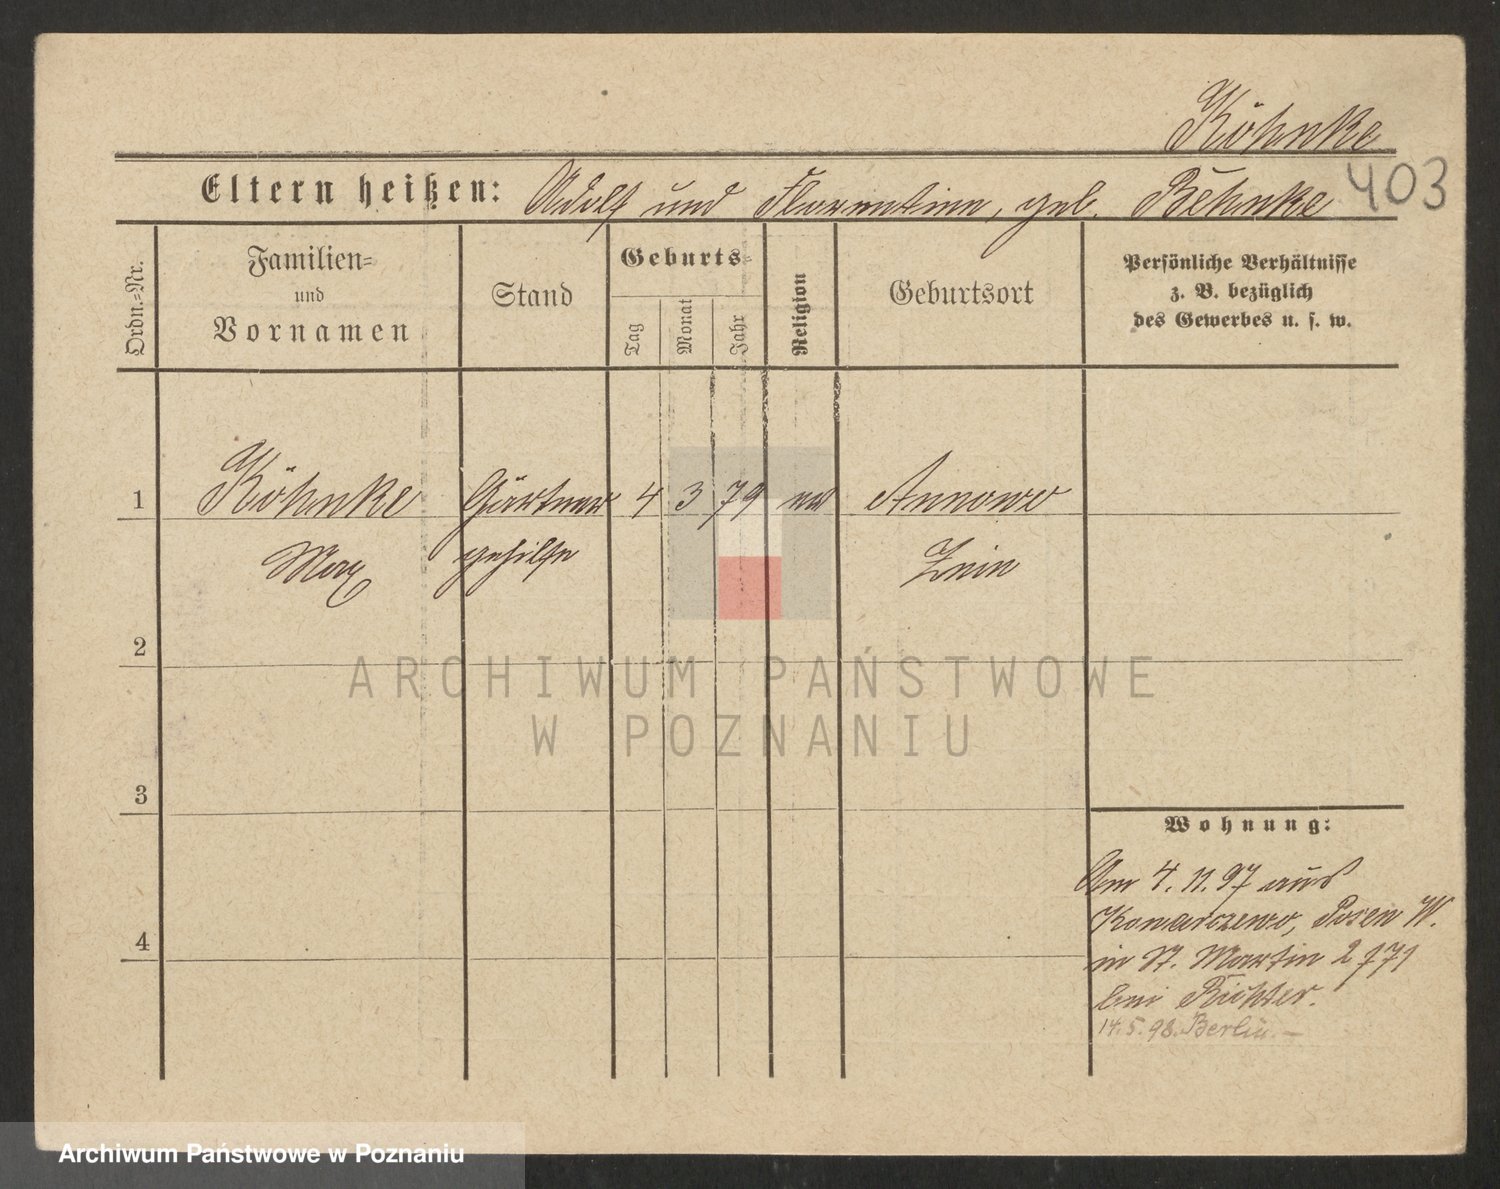 Köhnke
403
Eltern heißen: Adolf und Florentine, geb. Behnke
Ordn.-Nr.
Familien-
und
Vornamen
Stand
Geburts-
Tag
Monat
Jahr
Religion
Geburtsort
Persönliche Verhältnisse
z. B. bezüglich
des Gewerbes u. s. w.
1 Köhnke Gärtner 4 3 79 ev Annowo
Max gehilfe Znin
2
3
4
Wohnung:
Am 4. 11. 97 aus
Komarczewo, Posen W.
in St. Martin 271
bei Richter.
14.5.98. Berlin. —
ARCHIWUM PAŃSTWOWE
W POZNANIU
Archiwum Państwowe w Poznaniu